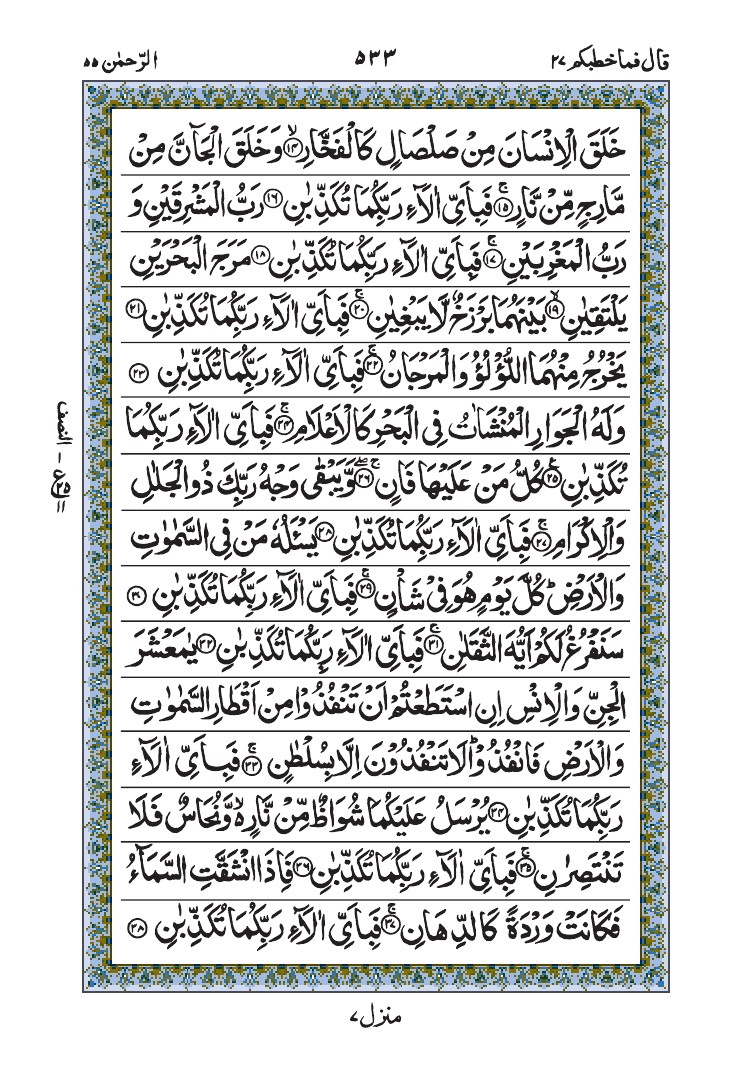 قال فما خطبكم ٢٧ ٥٣٣ الرّحمٰن ٥٥
خَلَقَ الْاِنْسَانَ مِنْ صَلْصَالٍ كَالْفَخَّارِ ۙ﴿۱۴﴾ وَ خَلَقَ الْجَآنَّ مِنْ
مَّارِجٍ مِّنْ نَّارٍ ۚ﴿۱۵﴾ فَبِاَيِّ اٰلَآءِ رَبِّكُمَا تُكَذِّبٰنِ ﴿۱۶﴾ رَبُّ الْمَشْرِقَيْنِ وَ
رَبُّ الْمَغْرِبَيْنِ ۚ﴿۱۷﴾ فَبِاَيِّ اٰلَآءِ رَبِّكُمَا تُكَذِّبٰنِ ﴿۱۸﴾ مَرَجَ الْبَحْرَيْنِ
يَلْتَقِيٰنِ ۙ﴿۱۹﴾ بَيْنَهُمَا بَرْزَخٌ لَّا يَبْغِيٰنِ ۚ﴿۲۰﴾ فَبِاَيِّ اٰلَآءِ رَبِّكُمَا تُكَذِّبٰنِ ﴿۲۱﴾
يَخْرُجُ مِنْهُمَا اللُّؤْلُؤُ وَ الْمَرْجَانُ ۚ﴿۲۲﴾ فَبِاَيِّ اٰلَآءِ رَبِّكُمَا تُكَذِّبٰنِ ﴿۲۳﴾
وَلَهُ الْجَوَارِ الْمُنْشَاٰتُ فِي الْبَحْرِ كَالْاَعْلَامِ ۚ﴿۲۴﴾ فَبِاَيِّ اٰلَآءِ رَبِّكُمَا
تُكَذِّبٰنِ ۠﴿۲۵﴾ كُلُّ مَنْ عَلَيْهَا فَانٍ ۚۖ﴿۲۶﴾ وَّ يَبْقٰى وَجْهُ رَبِّكَ ذُو الْجَلٰلِ
وَ الْاِكْرَامِ ۚ﴿۲۷﴾ فَبِاَيِّ اٰلَآءِ رَبِّكُمَا تُكَذِّبٰنِ ﴿۲۸﴾ يَسْـَٔلُهٗ مَنْ فِي السَّمٰوٰتِ
وَ الْاَرْضِ ؕ كُلَّ يَوْمٍ هُوَ فِيْ شَاْنٍ ۚ﴿۲۹﴾ فَبِاَيِّ اٰلَآءِ رَبِّكُمَا تُكَذِّبٰنِ ﴿۳۰﴾
سَنَفْرُغُ لَكُمْ اَيُّهَ الثَّقَلٰنِ ۚ﴿۳۱﴾ فَبِاَيِّ اٰلَآءِ رَبِّكُمَا تُكَذِّبٰنِ ﴿۳۲﴾ يٰمَعْشَرَ
الْجِنِّ وَ الْاِنْسِ اِنِ اسْتَطَعْتُمْ اَنْ تَنْفُذُوْا مِنْ اَقْطَارِ السَّمٰوٰتِ
وَ الْاَرْضِ فَانْفُذُوْا ؕ لَا تَنْفُذُوْنَ اِلَّا بِسُلْطٰنٍ ۚ﴿۳۳﴾ فَبِاَيِّ اٰلَآءِ
رَبِّكُمَا تُكَذِّبٰنِ ﴿۳۴﴾ يُرْسَلُ عَلَيْكُمَا شُوَاظٌ مِّنْ نَّارٍ ۙ۬ وَّ نُحَاسٌ فَلَا
تَنْتَصِرٰنِ ۚ﴿۳۵﴾ فَبِاَيِّ اٰلَآءِ رَبِّكُمَا تُكَذِّبٰنِ ﴿۳۶﴾ فَاِذَا انْشَقَّتِ السَّمَآءُ
فَكَانَتْ وَرْدَةً كَالدِّهَانِ ۚ﴿۳۷﴾ فَبِاَيِّ اٰلَآءِ رَبِّكُمَا تُكَذِّبٰنِ ﴿۳۸﴾
النصف
منزل ٧